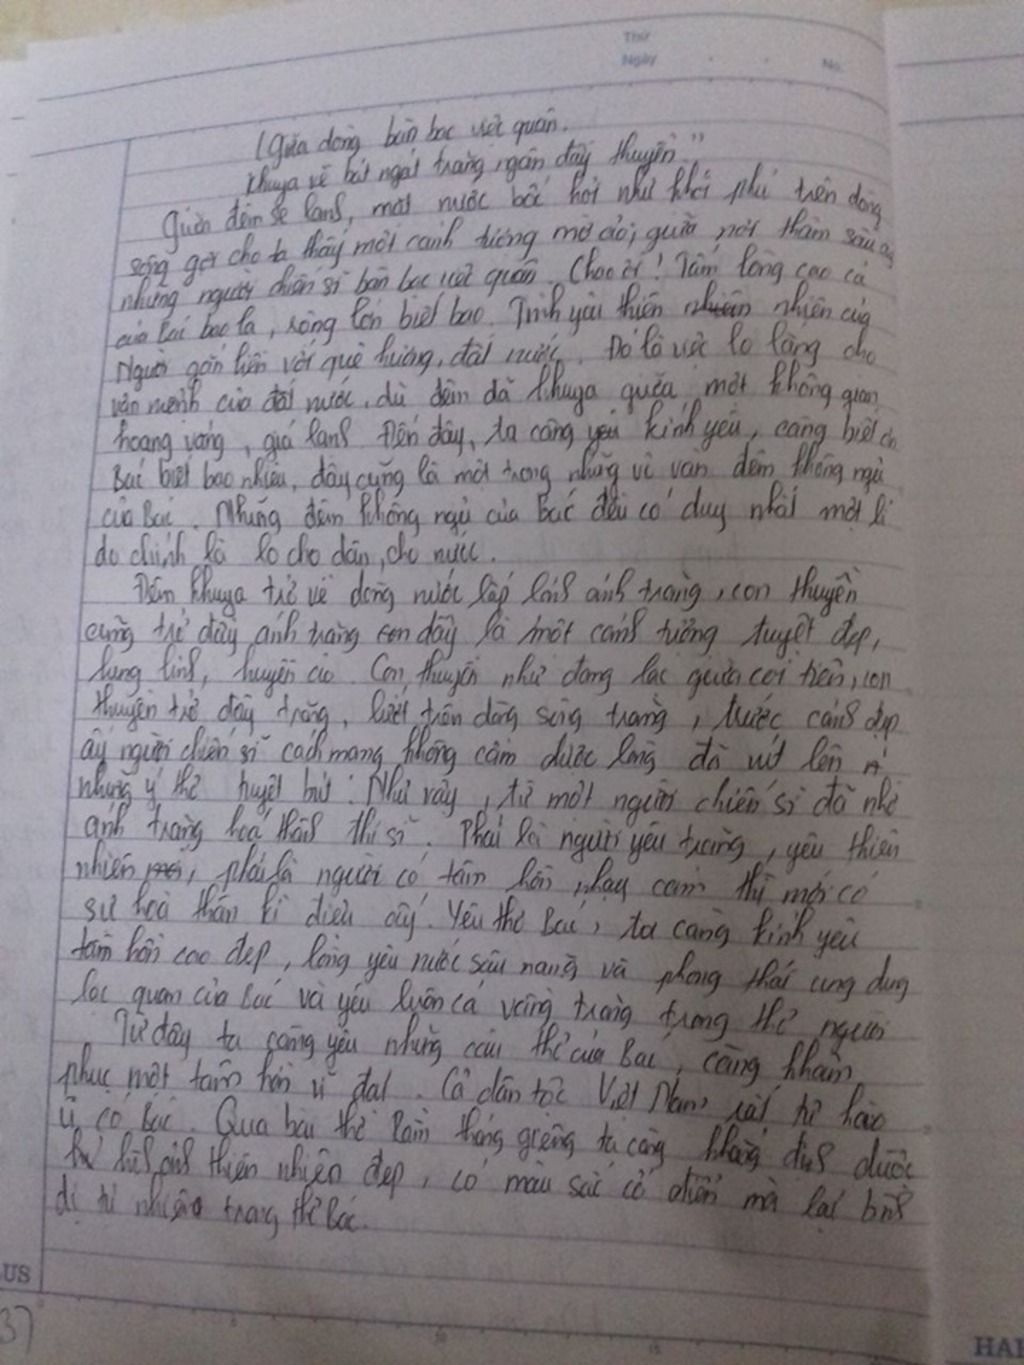 Thứ
Ngày
No.
(Giữa dòng bàn bạc việt quân.
Khuya về bát ngát trăng ngân đầy thuyền."
Giữa đêm se lạnh, mặt nước bốc hơi như khói phủ trên dòng
sông gợi cho ta thấy một cảnh tượng mờ ảo, giữa nơi thâm sâu ấy
những người chiến sĩ bàn bạc việt quân. Chao ôi! Tấm lòng cao cả
của Bác bao la, rộng lớn biết bao. Tình yêu thiên nhiên của
Người gắn liền với quê hương, đất nước. Đó là việc lo lắng cho
vận mệnh của đất nước, dù đêm đã khuya giữa một không gian
hoang vắng, giá lạnh. Đến đây, ta càng yêu kính yêu, càng biết ơn
Bác biết bao nhiêu, đây cũng là một trong những vì vàn đêm không ngủ
của Bác. Những đêm không ngủ của Bác đều có duy nhất một lí
do chính là lo cho dân, cho nước.
Đêm khuya trở về dòng nước lấp lánh ánh trăng, con thuyền
cũng trở đầy ánh trăng đây là một cảnh tượng tuyệt đẹp,
lung linh, huyền ảo. Con thuyền như đang lạc giữa cõi tiên, con
thuyền trở đầy trăng, lướt trên dòng sông trăng, trước cảnh đẹp
ấy người chiến sĩ cách mạng không cầm được lòng đã viết lên
những ý thơ tuyệt bút. Như vậy, từ một người chiến sĩ đã nhờ
ánh trăng hoá thành thi sĩ. Phải là người yêu trăng, yêu thiên
nhiên, phải là người có tâm hồn nhạy cảm thì mới có
sự hoá thân kì diệu ấy. Yêu thơ Bác, ta càng kính yêu
tâm hồn cao đẹp, lòng yêu nước sâu nặng và phong thái ung dung
lạc quan của Bác và yêu luôn cả vầng trăng trong thơ người
Từ đây ta càng yêu những câu thơ của Bác, càng khâm
phục một tâm hồn vĩ đại. Cả dân tộc Việt Nam rất tự hào
vì có Bác. Qua bài thơ Rằm tháng giêng ta càng khẳng định được
hình ảnh thiên nhiên đẹp, có màu sắc cổ điển mà lại bình
dị tự nhiên trong thơ Bác.
LUS
37
HAI